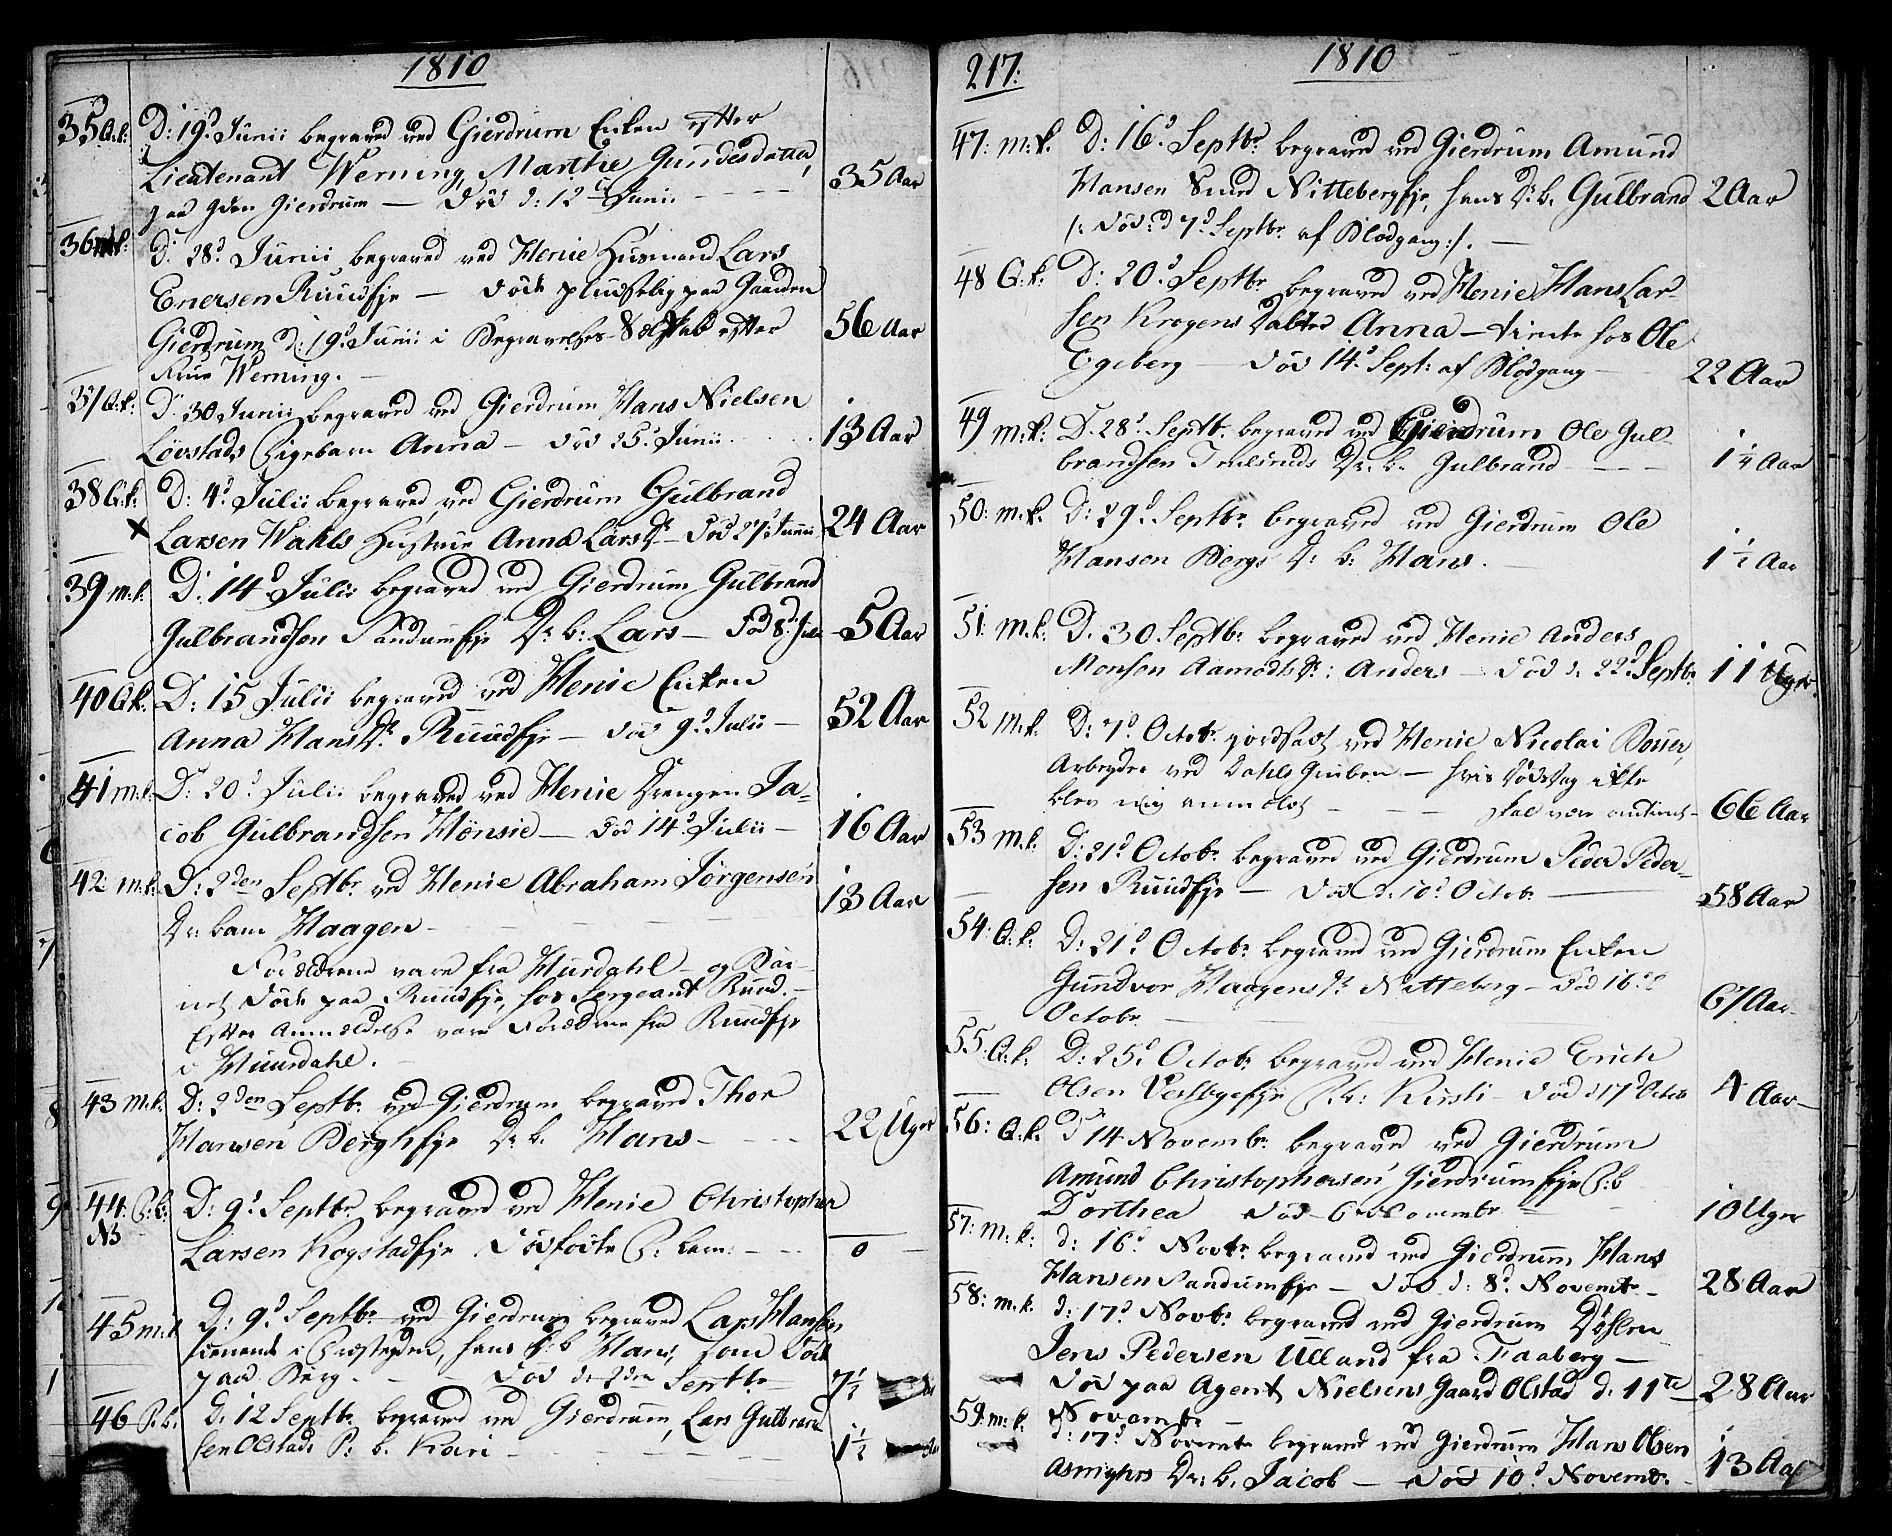 1810
35 Q:k: D: 19d Junii begraved ved Gierdrum Enken efter
Lieutenant Werning, Marthe Gundesdatter,
paa Gden Gierdrum — Död d: 12te Junii — 35 Aar
36 m:k: D: 28d Junii begraved ved Henie Husmand Lars
Enersen Ruudsfje — döde pludselig paa Gaarden
Gierdrum d: 19d Junii i Begravelses-Selskab efter 56 Aar
Frue Werning. —
37 Q:k: D: 30 Junii begraved ved Gierdrum Hans Nielsen
Lövstads Pigebarn Anna — död 25d Junii 13 Aar
38 Q:k: D: 4d Julii begraved ved Gierdrum Gulbrand
Larsen Wahls Hustrue Anna LarsDr — död 27d Junii 24 Aar
39 m.k. D: 14d Julii begraved ved Gierdrum Gulbrand
Gulbrandsen Sandumsfje Dr: b: Lars — död 8d Julii 5 Aar
40 Q.k. D: 15 Julii begraved ved Henie Enken
Anna HansDr Ruudsfje — död 9d Julii — 52 Aar
41 m.k. D: 20d Julii begraved ved Henie Drengen Ja-
cob Gulbrandsen Hönsie — död 14d Julii — 16 Aar
42 m.k. D: 2den Septbr. ved Henie Abraham Jörgensen
Dr: barn Haagen — 13 Aar
Forældrene vare fra Hurdahl — og Bar-
net döde paa Ruudsfje, hos Sergeant Ruud. —
Efter Anmældelse vare Forældrene fra Ruudsfje
i Huurdahl. —
43 m.k. D: 2den Septb. ved Gierdrum begraved Thor
Hansen Berghsfje Dr. b. Hans — 22 Uger
44: P:b: D: 9d Septbr begraved ved Henie Christopher
NB Larsen Kogstadsfje dödfödte P: barn: — 0 —
45 m:k D: 9d Septbr ved Gierdrum begraved Lars Hansen
tienende i Præstegden, hans b Hans, som döde
paa Berg. — död d: 2den Septbr 7½
46 P:b. D: 12 Septbr begraved ved Gierdrum, Lars Gulbrand
sen Olstads P: b. Kari — 1½
217: 1810
47: m:k. D: 16d Septbr. begraved ved Gierdrum Amund
Hansen Nittebergsfje, hans Dr. b. Gulbrand 2 Aar
/: död d 7d Septbr. af Blodgang :/. —
48 Q:k: D: 20d Septbr begraved ved Henie Hans Lar-
sen Krogens datter Anna — tiente hos Ole
Egeberg — död 14d Sept: af Blodgang — 22 Aar
49 m:k: D. 28d Septb. begraved ved Gierdrum Ole Gul-
brandsen Dr: b: Gulbrand — 1¼ Aar
50: m.k. D: 29d Septbr. begraved ved Gierdrum Ole
Hansen Bergs Dr: b: Hans. — 1½ Aar
51: m.k: D. 30 Septbr begraved ved Henie Anders
Monsen Aamodts Dr: Anders — död d. 22d Septbr. 11 Uger
52 m.k. D: 7d Octob. jordfæst ved Henie Nicolai
Arbeyder ved Dahls Gruben — hvis Dödsdag ikke
blev mig anmeldt — skal være 66 Aar
53 m.k. D: 21d Octobr. begraved ved Gierdrum Peder Peder-
sen Ruudsfje — död d: 10d Octob. — 58 Aar
54: Q.k. D: 21d Octobr begraved ved Gierdrum Enken
Gundvor HaagensDr Nitteberg — död 16de
Octobr — 67 Aar
55: Q.k. D: 25d Octobr begraved ved Henie Erich
Olsen Vestbyesfje P.b: Kirsti — död d 17d Octob 4 Aar —
56: Q.k. D 14 Novembr. begraved ved Gierdrum
Amund Christophersen Gierdrumsfje P:b
Dorthea död 6 Novembr — 10 Uger
57: m.k: d: 16d Novbr. begraved ved Gierdrum Hans
Hansen Sandumsfje — död d: 8d Novembr — 28 Aar
58: m.k. d: 17d Novbr. begraved ved Gierdrum
Jens Pedersen Ulland fra Faaberg —
död paa Agent Nielsens Gaard Olstad d: 11te 28 Aar
Novembr
59: m:k. d: 17d Novembr begraved ved Gierdrum Hans Olsen
Asmyhrs Dr: b. Jacob — död 10d Novembr. 13 Aar